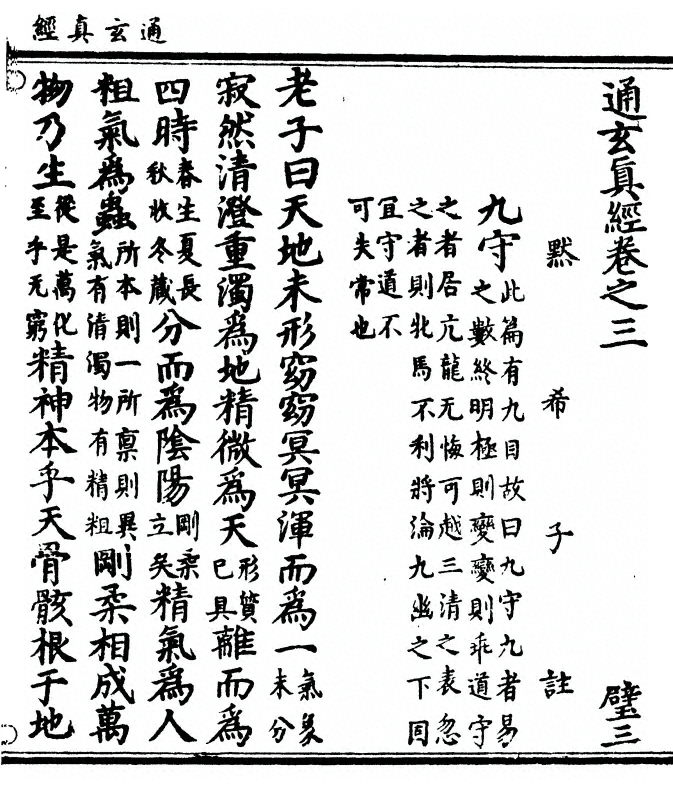 通玄真經
通玄真經卷之三 璧三
默希子註
九守此篇有九目故曰九守九者易之數終明極則變變則乖道守
之者居亢龍无悔可越三清之表忽之者則牝馬不利將淪九幽之下固
宜守道不可失常也
老子曰天地未形窈窈冥冥渾而為一氣象未分
寂然清澄重濁為地精微為天形質已具離而為
四時春生夏長秋收冬藏分而為陰陽剛柔立矣精氣為人
粗氣為蟲所本則一所稟則異氣有清濁物有精粗剛柔相成萬
物乃生從是萬化至乎无窮精神本乎天骨骸根于地